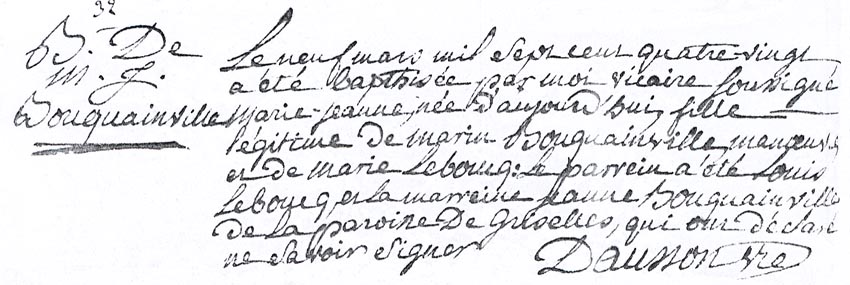 32
B. De
M. J.
Bouquainville
Le neuf mars mil sept cent quatre-vingt
a été baptisée par moi vicaire soussigné
marie-jeanne, née d'aujourd'hui, fille
légitime de marin Bouquainville, manœuvre
et de marie Lebourg: Le parrein a été Louis
Lebourg, et la marreine jeanne Bouquainville
de la paroisse De Griselles, qui ont déclaré
ne savoir signer
Dausson vre